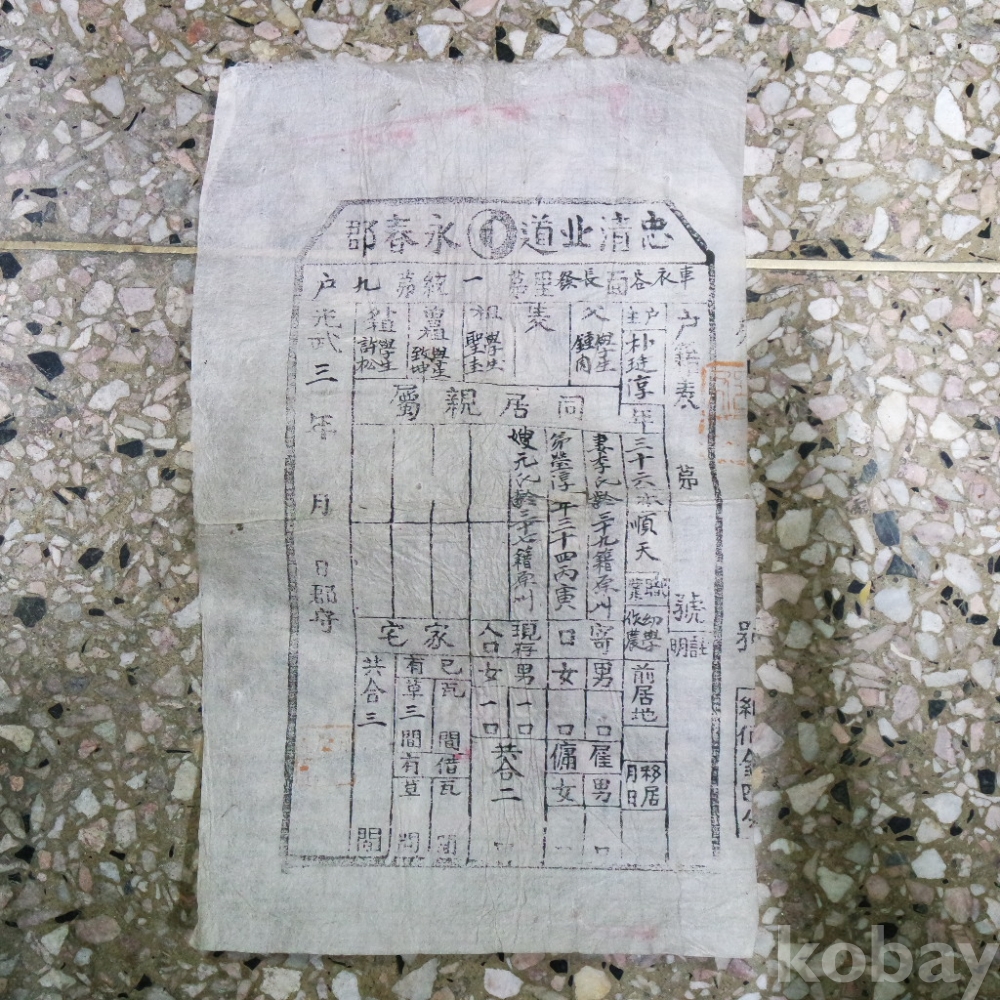 忠淸北道 永春郡
車衣谷面長發里第一統第九戶
戶籍表 第 號
註明
戶主 朴 淳 年 三十六 本 順天 職業 幼學 作農
前居地
移居 月 日
父 學生
祖 學生
曾祖 學生
學生
同居親屬
妻李氏齡三十九籍原州
弟 淳 年三十四丙寅
嫂元氏齡三十七籍原州
寄口 男 口 女 口
雇男 口
傭女
現存人口 男 一口 女 一口
共合二 口
家宅
已瓦 間借瓦 間
有草三間有草 間
共合三 間
光武三年 月 日郡守
號
kobay